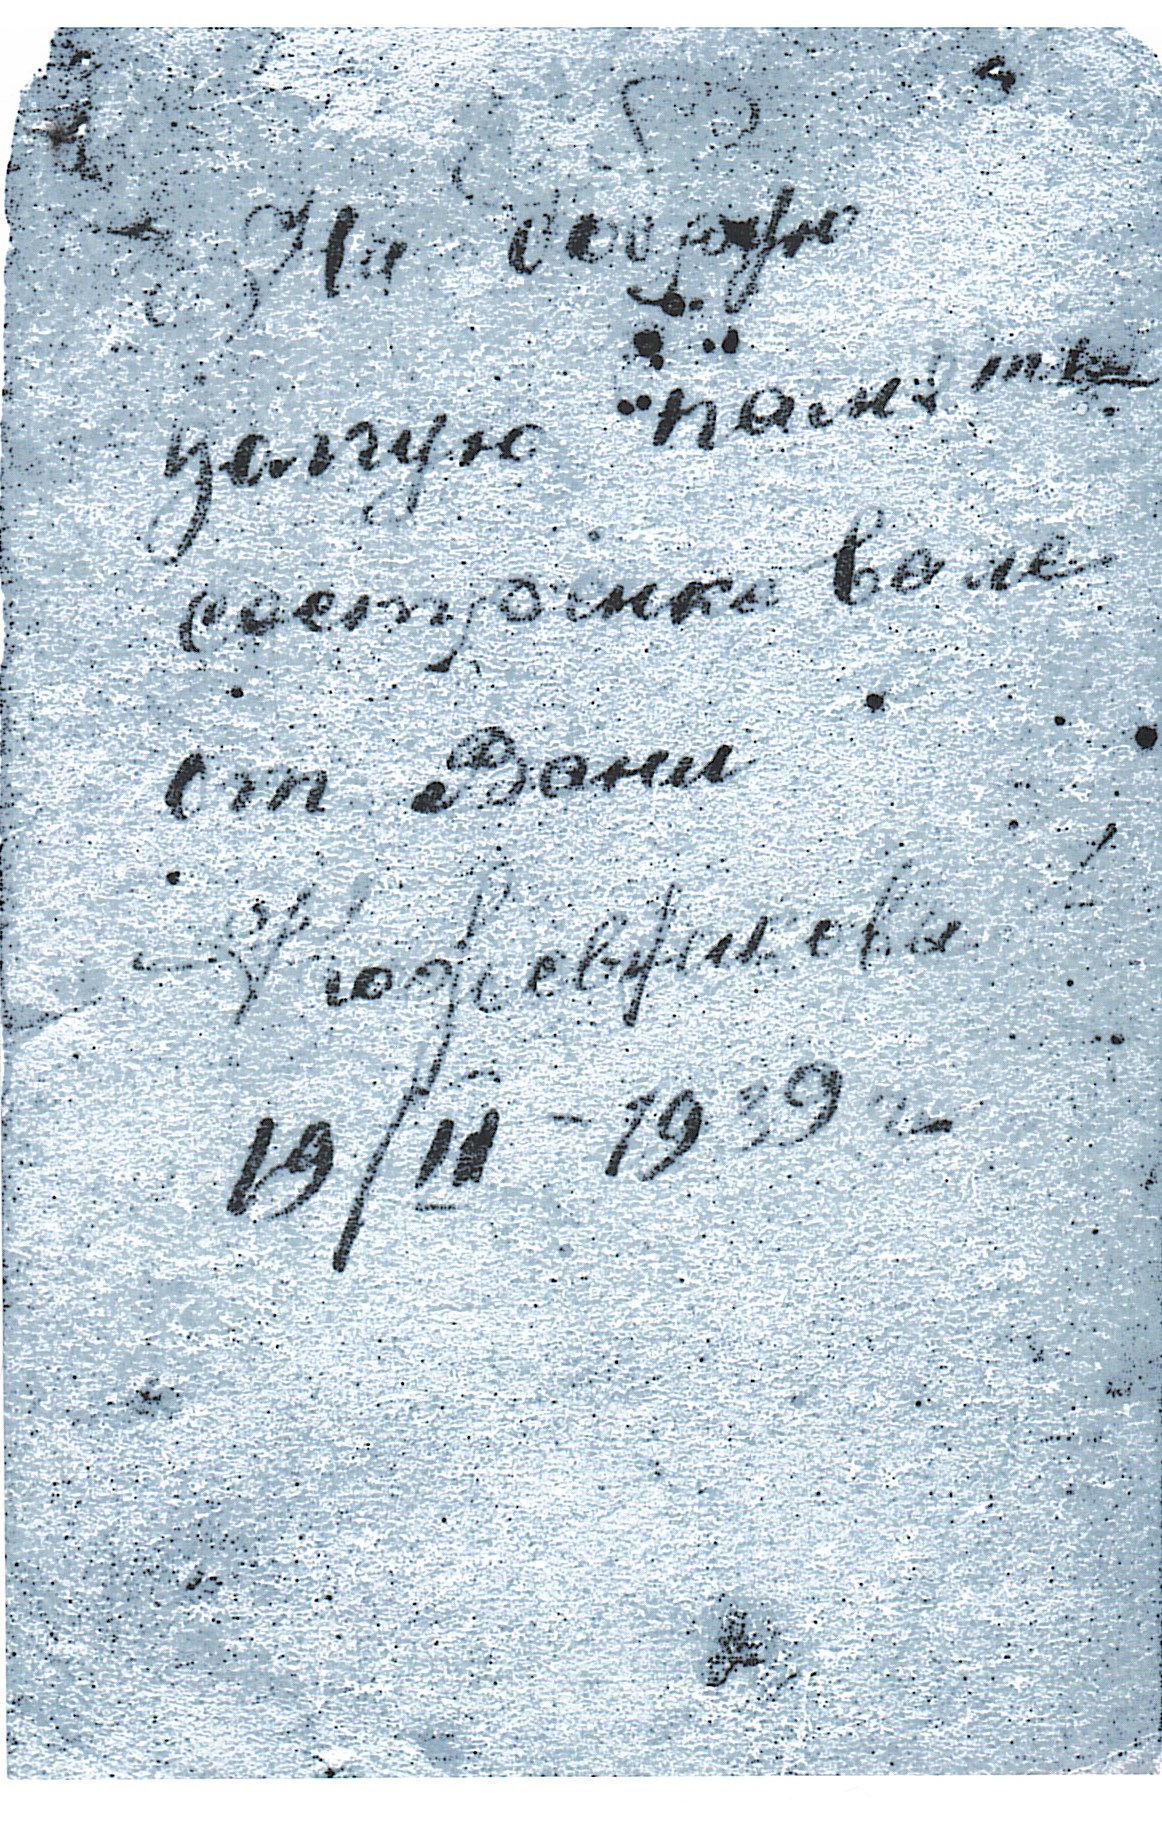 На добрую
долгую память
сестрёнке Вале
от Вани
Кожевникова
19/II - 1939 г